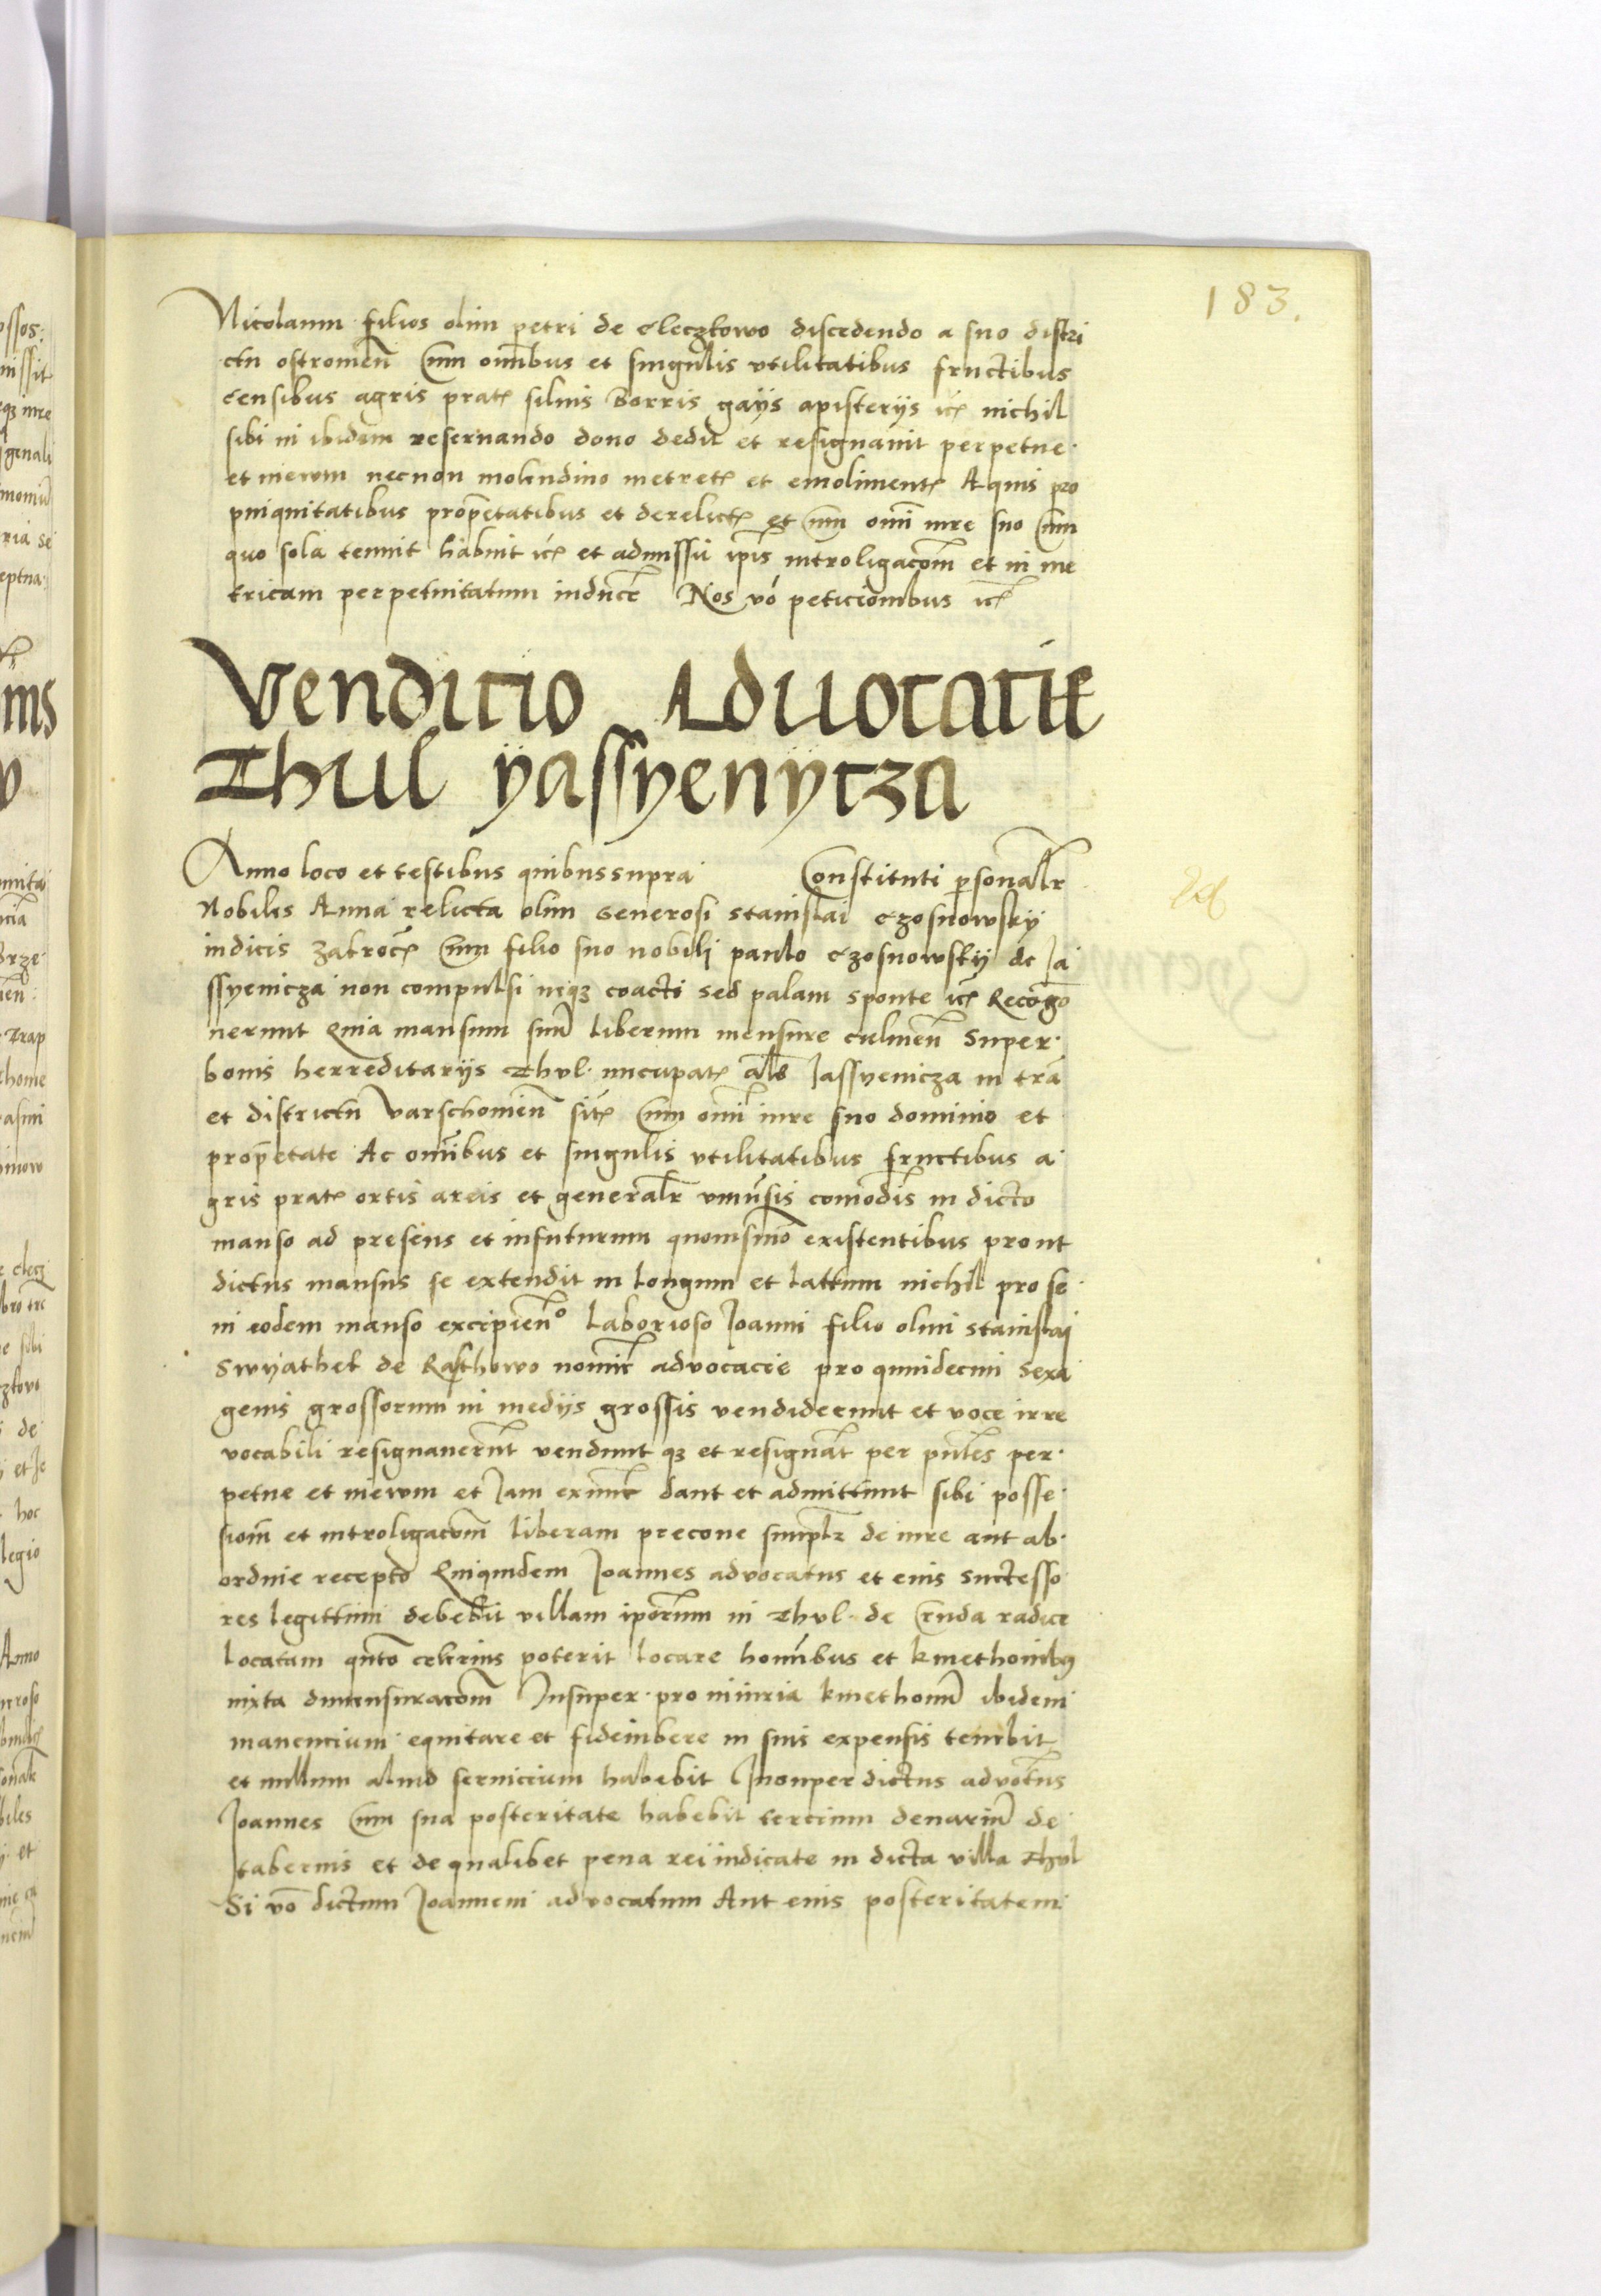 183.
Nicolaum filios olim petri de Cleczkowo discedendo a suo distri
ctu ostromień Cum omībus et singulis vtilitatibus fructibus
censibus agris prat silvis Borris gayis apisteriis ic nichil
sibi in ibidem reservando dono dedit et resignavit perpetue
et in ewm necnon molendino metret et emoliment Aquis pro
piniquitatibus propētatibus et derelict et cum omī iure suo Cum
quo sola tenuit habuit ic et admissū ipīs introligacoēm et in me
tricam perpetuitatum inducē Nos vō peticionibus ic
Venditio Advocatie
Thul yassyenycza
Anno loco et testibus quibussupra Constituti psonalr
Nobiles Anna relicta olim Generosi Stanislai Czosnowsky
iudicis Zakroc Cum filio suo nobili paulo Czosnowsky de Ja
ssyenicza non compulsi neq3 coacti sed palam sponte ic Recogō
nerunt Quia mansum suū liberum mensure culmeñ super
bonis herreditariis Thul nucupat als Jassyenicza in trā
et districtu Varschovień sit Cum omī iure suo dominio et
propētate Ac omībus et singulis vtilitatibus fructibus a
gris prat ortis areis et generalr vniūsis comodis in dicto
manso ad presens et infuturum quovismō existentibus prout
dictus mansus se extendit in longum et lattum nichil pro se
in eodem manso excipieñ Laborioso Joanni filio olim Stanislai
Swyathek de Rakhowo nomīe advocacie pro quindecim sexa
genis grossorum in mediis grossis vendiderunt et voce irre
vocabili resignaverūt vendunt q3 et resignāt per pn̄tes per
petue et in ewm et Jam ex nunc dant et admittunt sibi posse
siom̄ et introligacom̄ liberam precone simplr de iure aut ab
ordine recepto Quiquidem Joannes advocatus et eius suctesso
res legittimi debebit villam ipōrum in Thul de Cruda radice
locatam qn̄to celerius poterit locare homībus et kmethonib9
iuxta dimensuracom̄ Insuper pro iniuria kmethonū ibidem
manencium equitare et fideiubere in suis expensis tenebit
et nullum aliud servicium habebit Insuper dictus advocatus
Joannes Cum sua posteritate habebit tercium denariū de
tabernis et de qualibet pena rei iudicate in dicta villa Thul
Si vō dictum Joannem advocatum Aut eius posteritatem